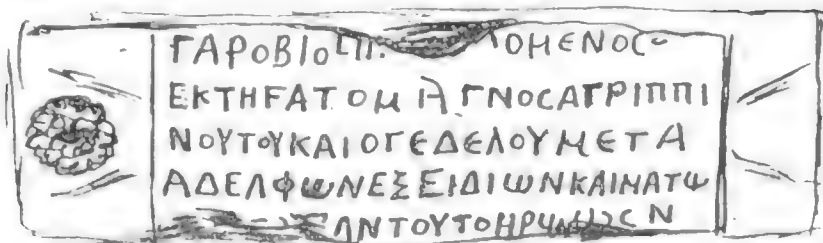 ΓΑΡΟΒΙΟ ΟΜΕΝΟϹ
ΕΚΤΗϜΑΤΟΜΑΓΝΟϹΑΓΡΙΠΠΙ
ΝΟΥΤΟΥΚΑΙΟΓΕΔΕΛΟΥΜΕΤΑ
ΑΔΕΛΦΩΝΕΞΕΙΔΙΩΝΚΑΙΜΑΤΩ
ΛΝΤΟΥΤΟΗΡΩ